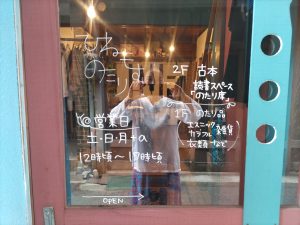 ひねもす
のたり
2F 古本
読書スペース
「のたり庵」
1F のたり品
エスニック
カラフル 雑貨
衣類など
@営業日
土・日・月+α
12時頃〜17時頃
OPEN